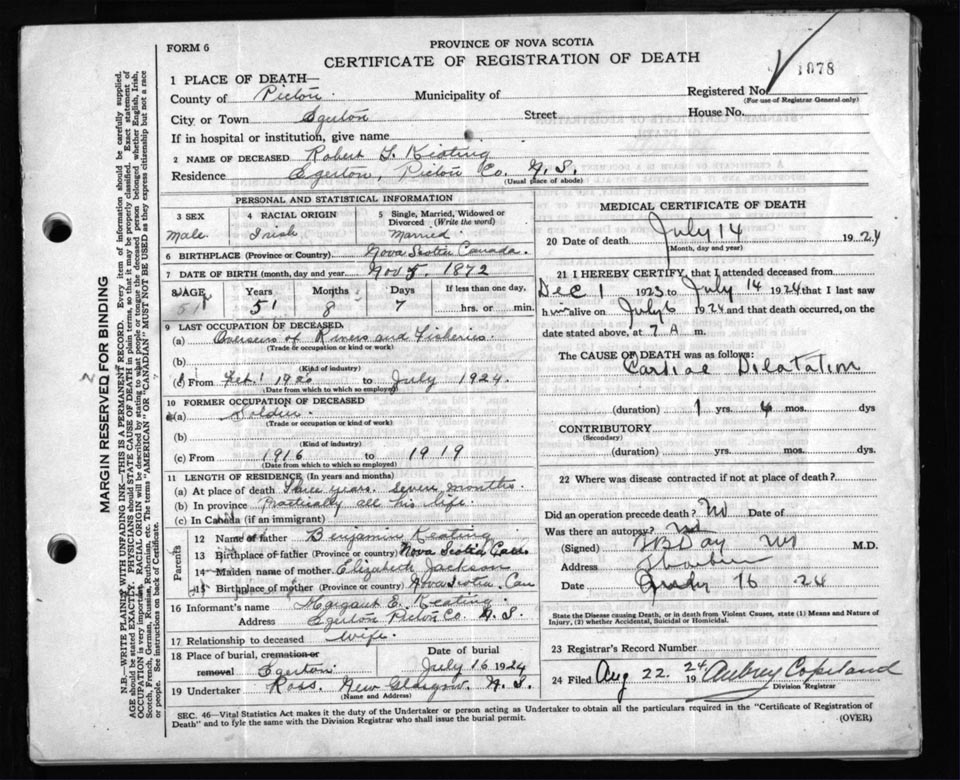 FORM 6
PROVINCE OF NOVA SCOTIA
CERTIFICATE OF REGISTRATION OF DEATH
1078
1 PLACE OF DEATH—
Registered No.
(For use of Registrar General only)
County of Pictou. Municipality of
City or Town Egerton Street House No.
If in hospital or institution, give name
2 NAME OF DECEASED Robert Keating
Residence Egerton, Pictou Co. N. S.
(Usual place of abode)
PERSONAL AND STATISTICAL INFORMATION
3 SEX 4 RACIAL ORIGIN 5 Single, Married, Widowed or Divorced (Write the word)
Male. Irish Married.
6 BIRTHPLACE (Province or Country) Nova Scotia Canada.
7 DATE OF BIRTH (month, day and year) Nov 1872
8 AGE Years Months Days If less than one day,
51 8 7 hrs. or min.
9 LAST OCCUPATION OF DECEASED
(a) Overseer of Rivers and Fisheries.
(Trade or occupation or kind of work)
(b)
(Kind of industry)
(c) From Feb. 1 1920 to July 1924.
(Date from which to which so employed)
10 FORMER OCCUPATION OF DECEASED
(a) Soldier.
(Trade or occupation or kind of work)
(b)
(Kind of industry)
(c) From 1916 to 1919
(Date from which to which so employed)
11 LENGTH OF RESIDENCE (In years and months)
(a) At place of death Three years. Seven months.
(b) In province Practically all his life.
(c) In Canada (if an immigrant)
Parents
12 Name of father Benjamin Keating.
13 Birthplace of father (Province or country) Nova Scotia Can.
14 Maiden name of mother Elizabeth Jackson
15 Birthplace of mother (Province or country) Nova Scotia. Can
16 Informant's name Margaret E. Keating.
Address Egerton Pictou Co. N. S.
17 Relationship to deceased Wife.
18 Place of burial, cremation or removal Egerton Date of burial July 16 1924
19 Undertaker Ross. New Glasgow. N. S.
(Name and Address)
MEDICAL CERTIFICATE OF DEATH
20 Date of death July 14 1924
(Month, day and year)
21 I HEREBY CERTIFY, that I attended deceased from
Dec 1 1923 to July 14 1924 that I last saw
h im alive on July 6 1924 and that death occurred, on
date stated above, at 7 A. m.
The CAUSE OF DEATH was as follows:
Cardiac Dilatation
(duration) 1 yrs. 4 mos. dys
CONTRIBUTORY
(Secondary)
(duration) yrs. mos. dys
22 Where was disease contracted if not at place of death?
Did an operation precede death? No Date of
Was there an autopsy? No
(Signed) Day M.D.
Address Thorburn
Date 16 24
State the Disease causing Death, or in death from Violent Causes, state (1) Means and Nature of Injury, (2) whether Accidental, Suicidal or Homicidal.
23 Registrar's Record Number
24 Filed Aug 22. 1924 Aubrey Copeland
Division Registrar
SEC. 46—Vital Statistics Act makes it the duty of the Undertaker or person acting as Undertaker to obtain all the particulars required in the "Certificate of Registration of
Death" and to fyle the same with the Division Registrar who shall issue the burial permit. (OVER)
MARGIN RESERVED FOR BINDING
N.B.—WRITE PLAINLY, WITH UNFADING INK—THIS IS A PERMANENT RECORD. Every item of information should be carefully supplied.
AGE should be stated EXACTLY. PHYSICIANS should STATE CAUSE OF DEATH in plain terms, so that it may be properly classified. Exact statement of
OCCUPATION is very important. RACIAL ORIGIN will be described by stating to what people or tongue the deceased person belonged whether English, Irish,
Scotch, French, German, Russian, Ruthenian, etc. The terms "AMERICAN" OR "CANADIAN" MUST NOT BE USED as they express citizenship but not a race
or people. See instructions on back of Certificate.